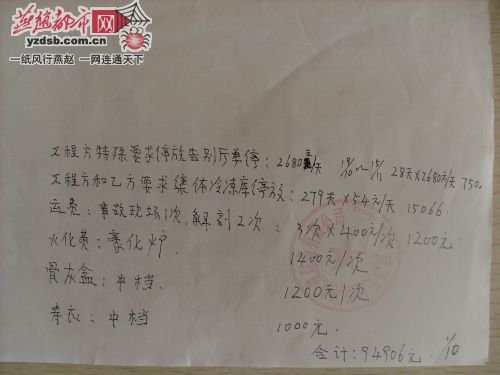 燕赵都市网
yzdsb.com.cn
一纸风行燕赵 一网连通天下
工程方特殊要求停放告别厅单停：2680元/天 28天×2680元/天 750
工程方和乙方要求遗体冷冻库停放：279天×54元/天 15066.
运费：事故现场1次，解剖2次：3次×400元/次 1200元.
火化费：豪化炉 1400元/次
骨灰盒：中档 1200元/次
寿衣：中档 1000元.
合计：94906元. 1/10